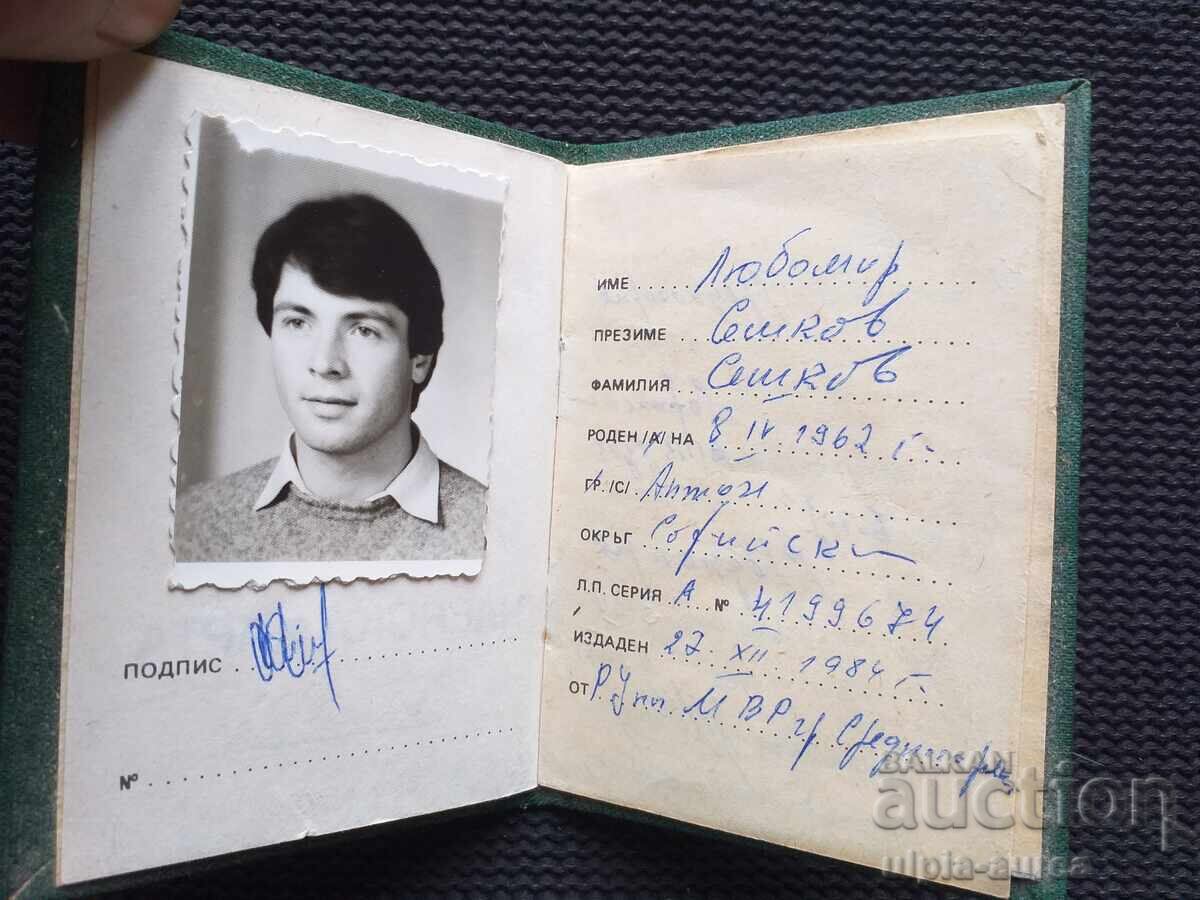 ПОДПИС
№
ИМЕ Любомир
ПРЕЗИМЕ Сешков
ФАМИЛИЯ Сешков
РОДЕН /А/ НА 8 IV 1962 г.
ГР. /С/ Антон
ОКРЪГ Софийски
Л.П. СЕРИЯ А № 4199674
ИЗДАДЕН 27 XII 1984 г.
ОТ РУ МВР гр
BALKAN
auction
ulpia-aurea